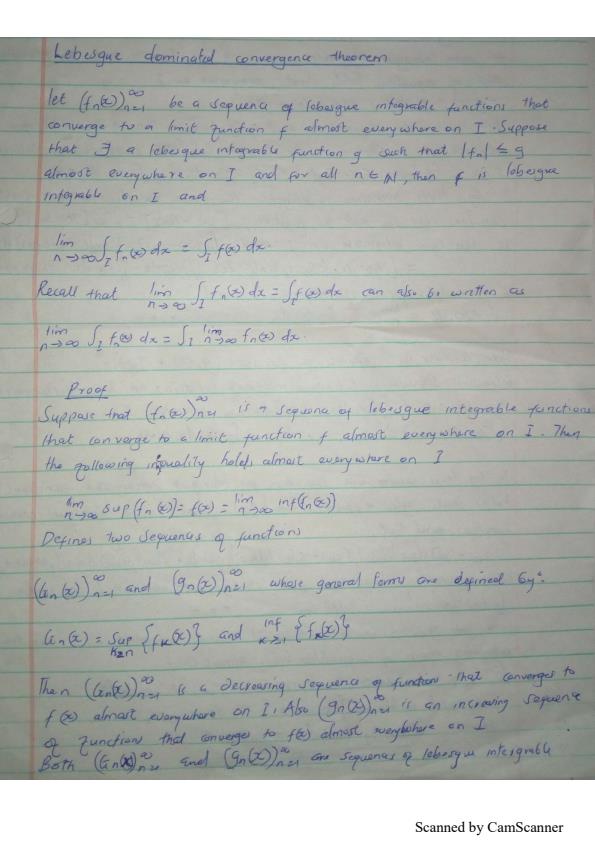 Lebesgue dominated convergence theorem
let (fn(x))∞n=1 be a sequence of lebesgue integrable functions that
converge to a limit function f almost everywhere on I. Suppose
that ∃ a lebesgue integrable function g such that |fn| ≤ g
almost everywhere on I and for all n ∈ N, then f is lebesgue
integrable on I and
lim n→∞ ∫I fn(x) dx = ∫I f(x) dx.
Recall that lim n→∞ ∫I fn(x) dx = ∫I f(x) dx can also be written as
lim n→∞ ∫I fn(x) dx = ∫I lim n→∞ fn(x) dx.
Proof
Suppose that (fn(x))∞n=1 is a sequence of lebesgue integrable functions
that converge to a limit function f almost everywhere on I. Then
the following inequality holds almost everywhere on I
lim n→∞ sup(fn(x)) = f(x) = lim n→∞ inf(fn(x))
Defines two sequences of functions
(Gn(x))∞n=1 and (gn(x))∞n=1 whose general forms are defined by:
Gn(x) = sup k≥n {fk(x)} and inf k≥1 {fk(x)}
Then (Gn(x))∞n=1 is a decreasing sequence of functions that converges to
f(x) almost everywhere on I. Also (gn(x))∞n=1 is an increasing sequence
of functions that converges to f(x) almost everywhere on I
Both (Gn(x))∞n=1 and (gn(x))∞n=1 are sequences of lebesgue intergrable
Scanned by CamScanner